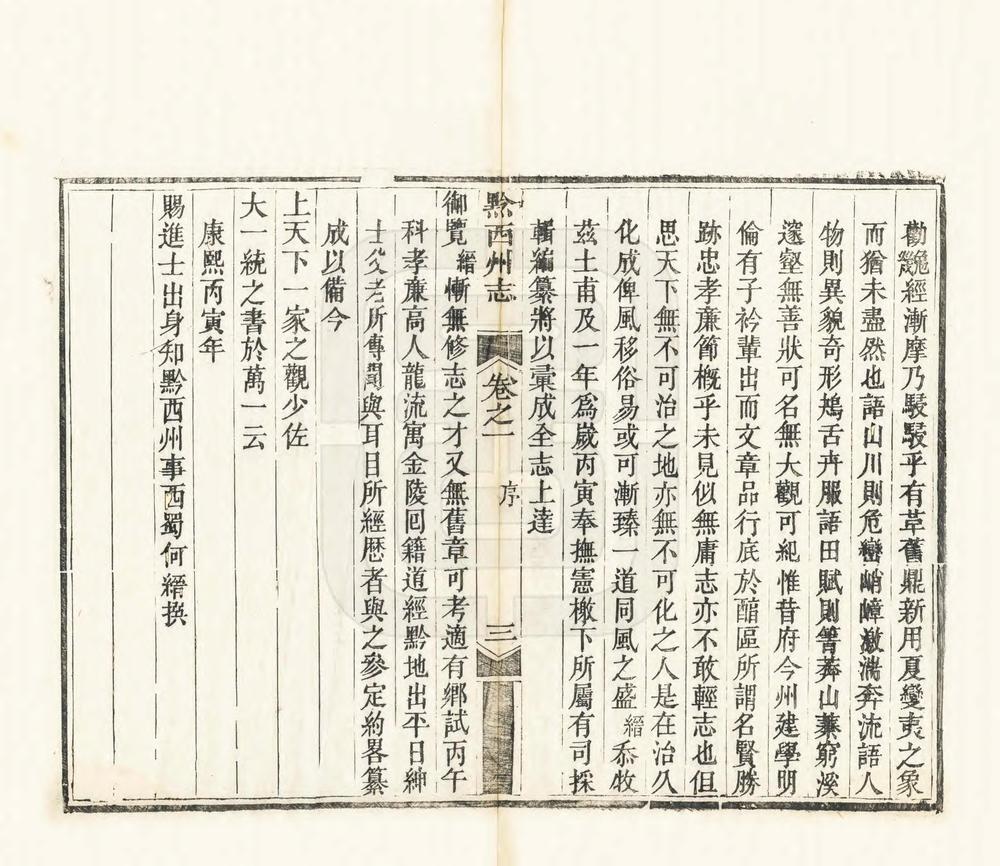 勸巍經漸摩乃駸駸乎有革舊鼎新用夏變夷之象
而猶未盡然也語山川則危巒峭嶂激湍奔流語人
物則異貌奇形鴂舌卉服語田賦則箐莽山蓁窮溪
邃壑無善狀可名無大觀可紀惟昔府今州建學明
倫有子衿輩出而文章品行底於酣區所謂名賢勝
跡忠孝亷節概乎未見似無庸志亦不敢輕志也但
思天下無不可治之地亦無不可化之人是在治久
化成俾風移俗易或可漸臻一道同風之盛縉忝牧
茲土甫及一年爲嵗丙寅奉撫憲檄下所屬有司採
輯編纂將以彙成全志上達
黔西州志 卷之一 序 三
御覽縉慚無修志之才又無舊章可考適有鄉試丙午
科孝亷高人龍流寓金陵回籍道經黔地出平日紳
士父老所傳聞與耳目所經歷者與之參定約畧纂
成以備今
上天下一家之觀少佐
大一統之書於萬一云
康熙丙寅年
賜進士出身知黔西州事西蜀何縉撰